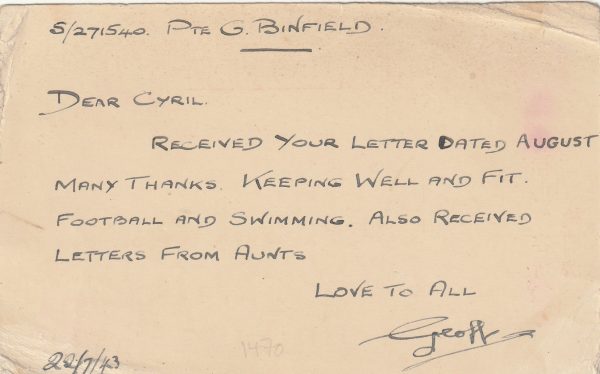 S/271540. PTE G. BINFIELD.
DEAR CYRIL.
RECEIVED YOUR LETTER DATED AUGUST
MANY THANKS. KEEPING WELL AND FIT.
FOOTBALL AND SWIMMING. ALSO RECEIVED
LETTERS FROM AUNTS
LOVE TO ALL
Geoff
22/7/43
1470